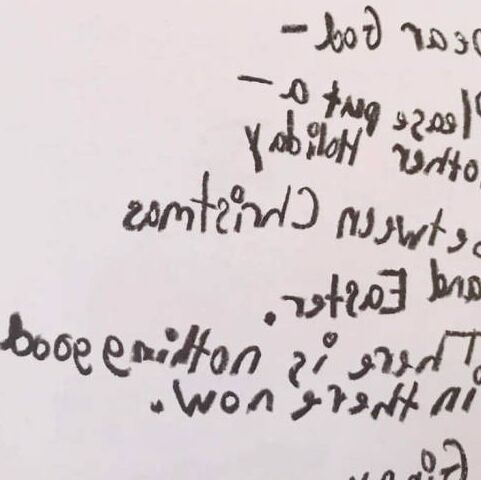 Dear God -
Please put a -
nother Holiday
between Christmas
and Easter.
There is nothing good
in there now.
Ginny